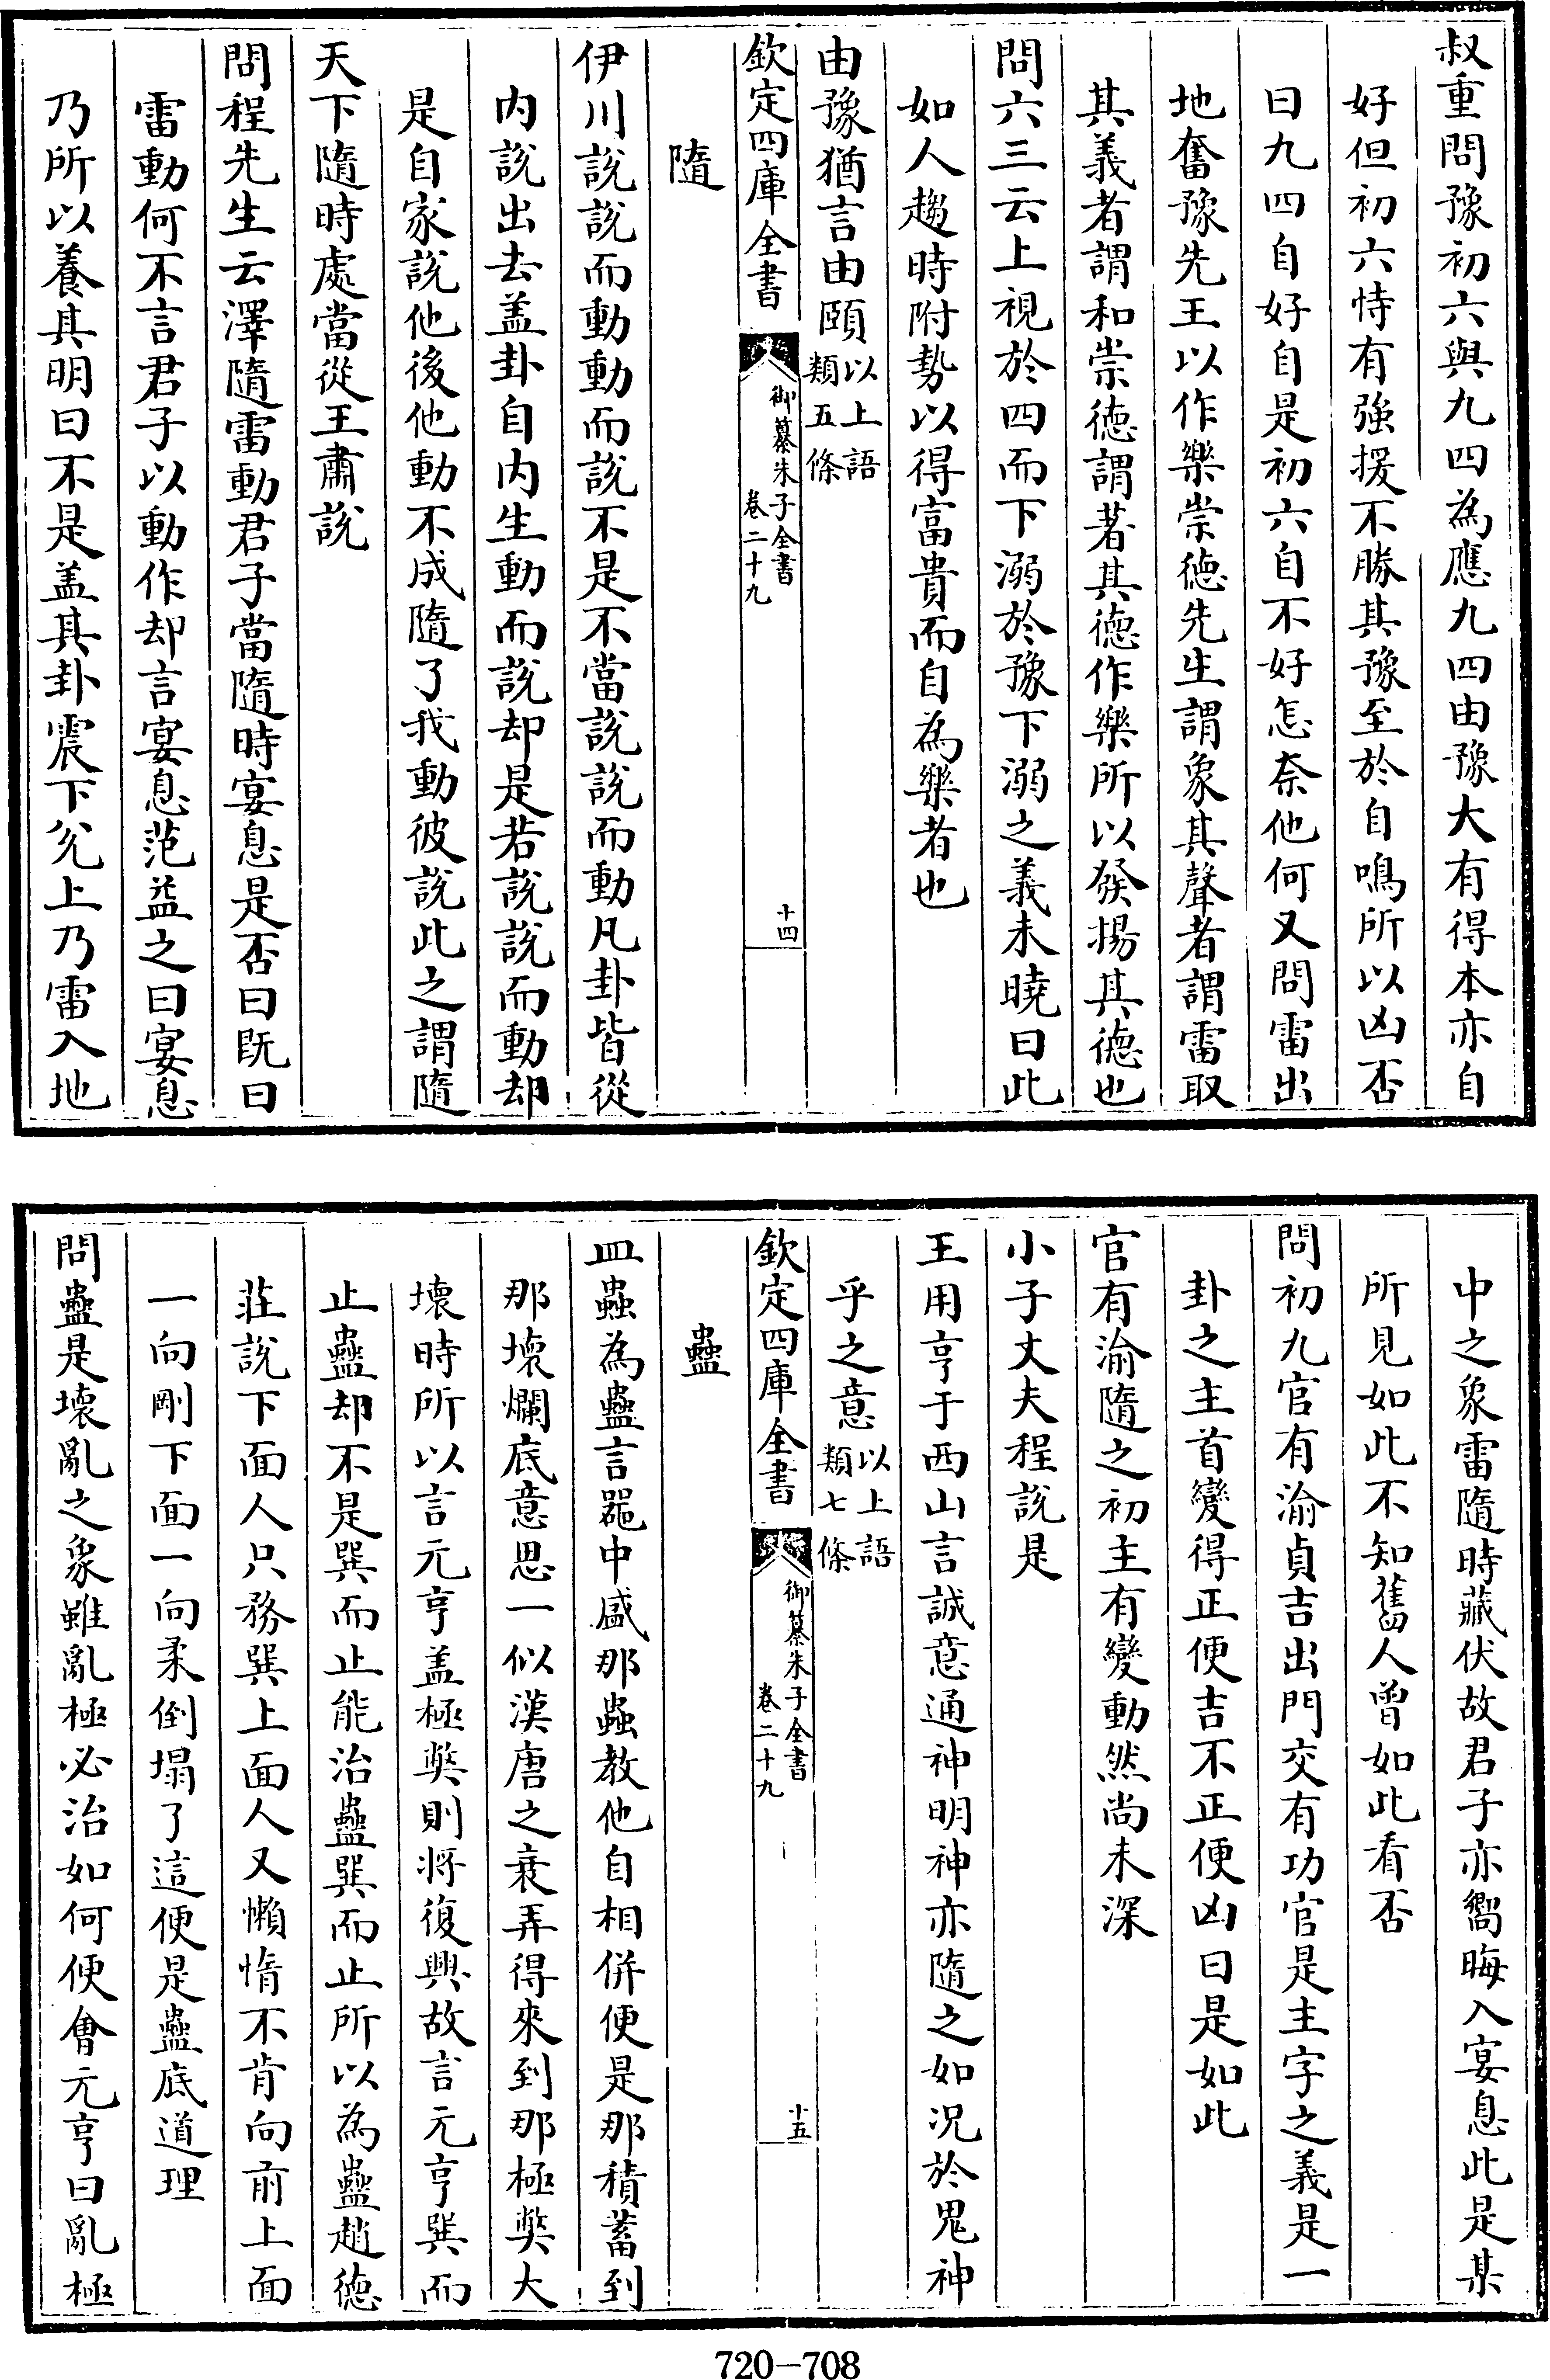 叔重問豫初六與九四為應九四由豫大有得本亦自
好但初六恃有強援不勝其豫至於自鳴所以凶否
曰九四自好自是初六自不好怎奈他何又問雷出
地奮豫先王以作樂崇徳先生謂象其聲者謂雷取
其義者謂和崇徳謂著其徳作樂所以發揚其徳也
問六三云上視於四而下溺於豫下溺之義未曉曰此
如人趨時附勢以得富貴而自為樂者也
由豫猶言由頤以上語類五條
欽定四庫全書
御纂朱子全書
卷二十九
十四
隨
伊川說說而動動而說不是不當說說而動凡卦皆從
内說出去盖卦自内生動而說却是若說說而動却
是自家說他後他動不成隨了我動彼說此之謂隨
天下隨時處當從王肅說
問程先生云澤隨雷動君子當隨時宴息是否曰既曰
雷動何不言君子以動作却言宴息范益之曰宴息
乃所以養其明曰不是盖其卦震下兊上乃雷入地
中之象雷隨時藏伏故君子亦嚮晦入宴息此是某
所見如此不知舊人曾如此看否
問初九官有渝貞吉出門交有功官是主字之義是一
卦之主首變得正便吉不正便凶曰是如此
官有渝隨之初主有變動然尚未深
小子丈夫程說是
王用亨于西山言誠意通神明神亦隨之如況於鬼神
乎之意以上語類七條
欽定四庫全書
御纂朱子全書
卷二十九
十五
蠱
皿蟲為蠱言器中盛那蟲教他自相併便是那積蓄到
那壞爛底意思一似漢唐之衰弄得來到那極弊大
壞時所以言元亨盖極弊則將復興故言元亨巽而
止蠱却不是巽而止能治蠱巽而止所以為蠱趙徳
莊說下面人只務巽上面人又懶惰不肯向前上面
一向剛下面一向柔倒塌了這便是蠱底道理
問蠱是壞亂之象雖亂極必治如何便會元亨曰亂極
720-708